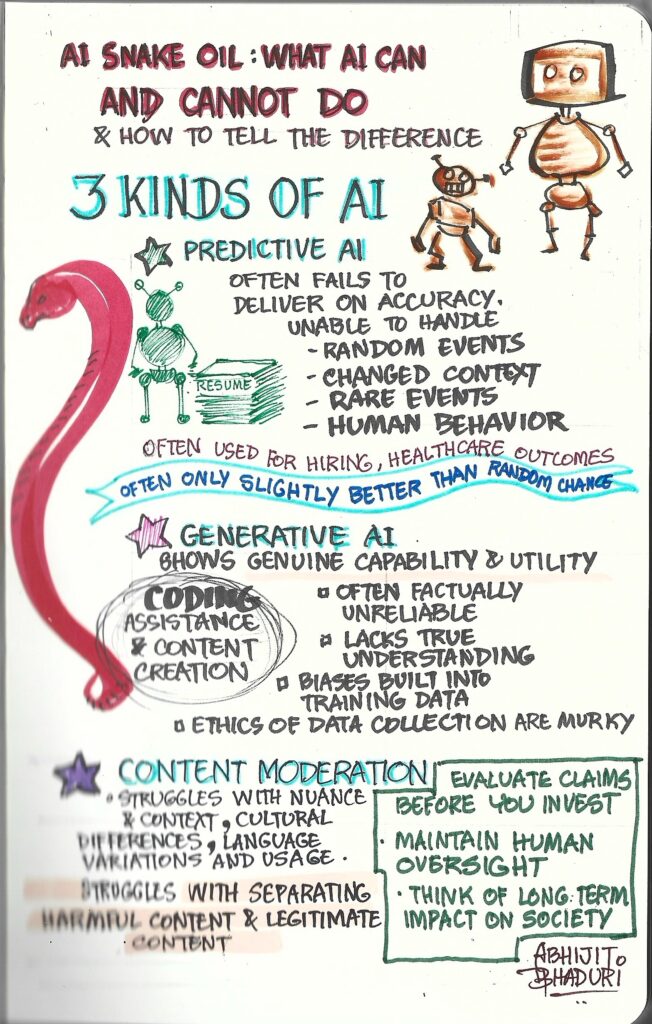 AI SNAKE OIL: WHAT AI CAN
AND CANNOT DO
& HOW TO TELL THE DIFFERENCE
3 KINDS OF AI
PREDICTIVE AI
OFTEN FAILS TO
DELIVER ON ACCURACY.
UNABLE TO HANDLE
- RANDOM EVENTS
- CHANGED CONTEXT
- RARE EVENTS
- HUMAN BEHAVIOR
RESUME
OFTEN USED FOR HIRING, HEALTHCARE OUTCOMES
OFTEN ONLY SLIGHTLY BETTER THAN RANDOM CHANCE
GENERATIVE AI
SHOWS GENUINE CAPABILITY & UTILITY
CODING
ASSISTANCE
& CONTENT
CREATION
OFTEN FACTUALLY
UNRELIABLE
LACKS TRUE
UNDERSTANDING
BIASES BUILT INTO
TRAINING DATA
ETHICS OF DATA COLLECTION ARE MURKY
CONTENT MODERATION
• STRUGGLES WITH NUANCE
& CONTEXT, CULTURAL
DIFFERENCES, LANGUAGE
VARIATIONS AND USAGE.
STRUGGLES WITH SEPARATING
HARMFUL CONTENT & LEGITIMATE
CONTENT
EVALUATE CLAIMS
BEFORE YOU INVEST
• MAINTAIN HUMAN
OVERSIGHT
• THINK OF LONG-TERM
IMPACT ON SOCIETY
ABHIJIT
BHADURI